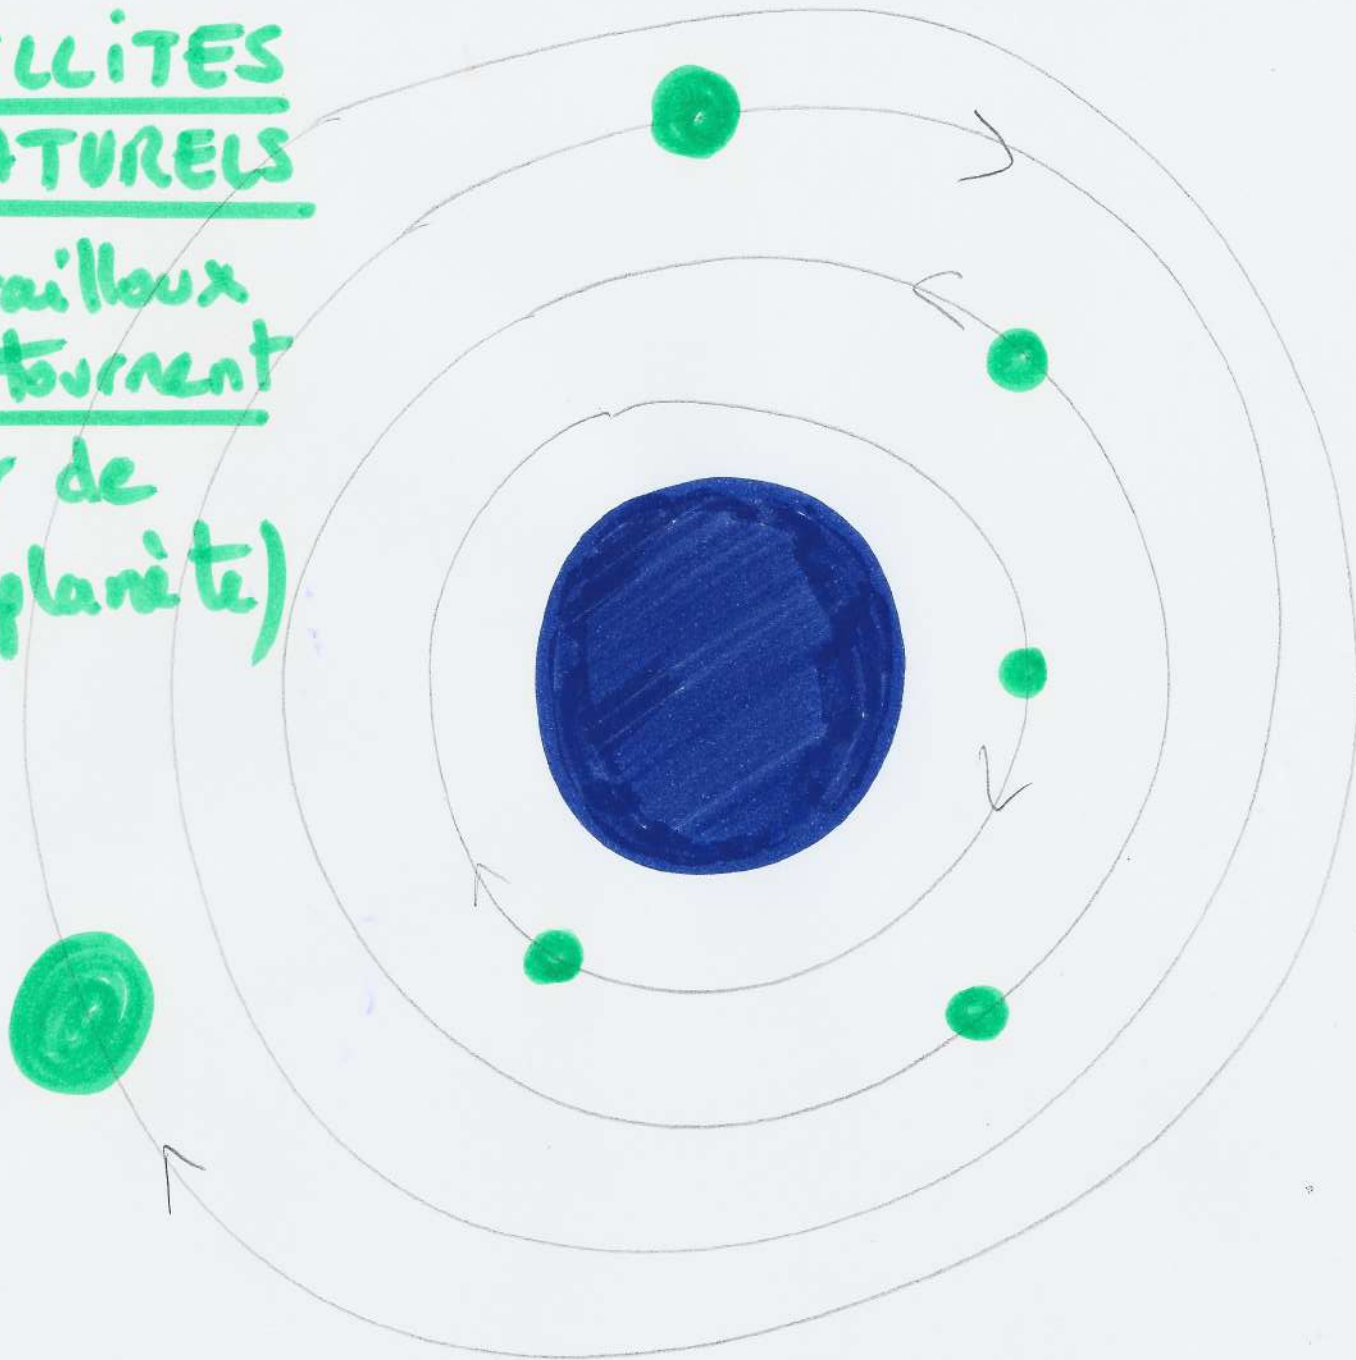 LLiTES
ATURELS
ailloux
tournent
de
planète)